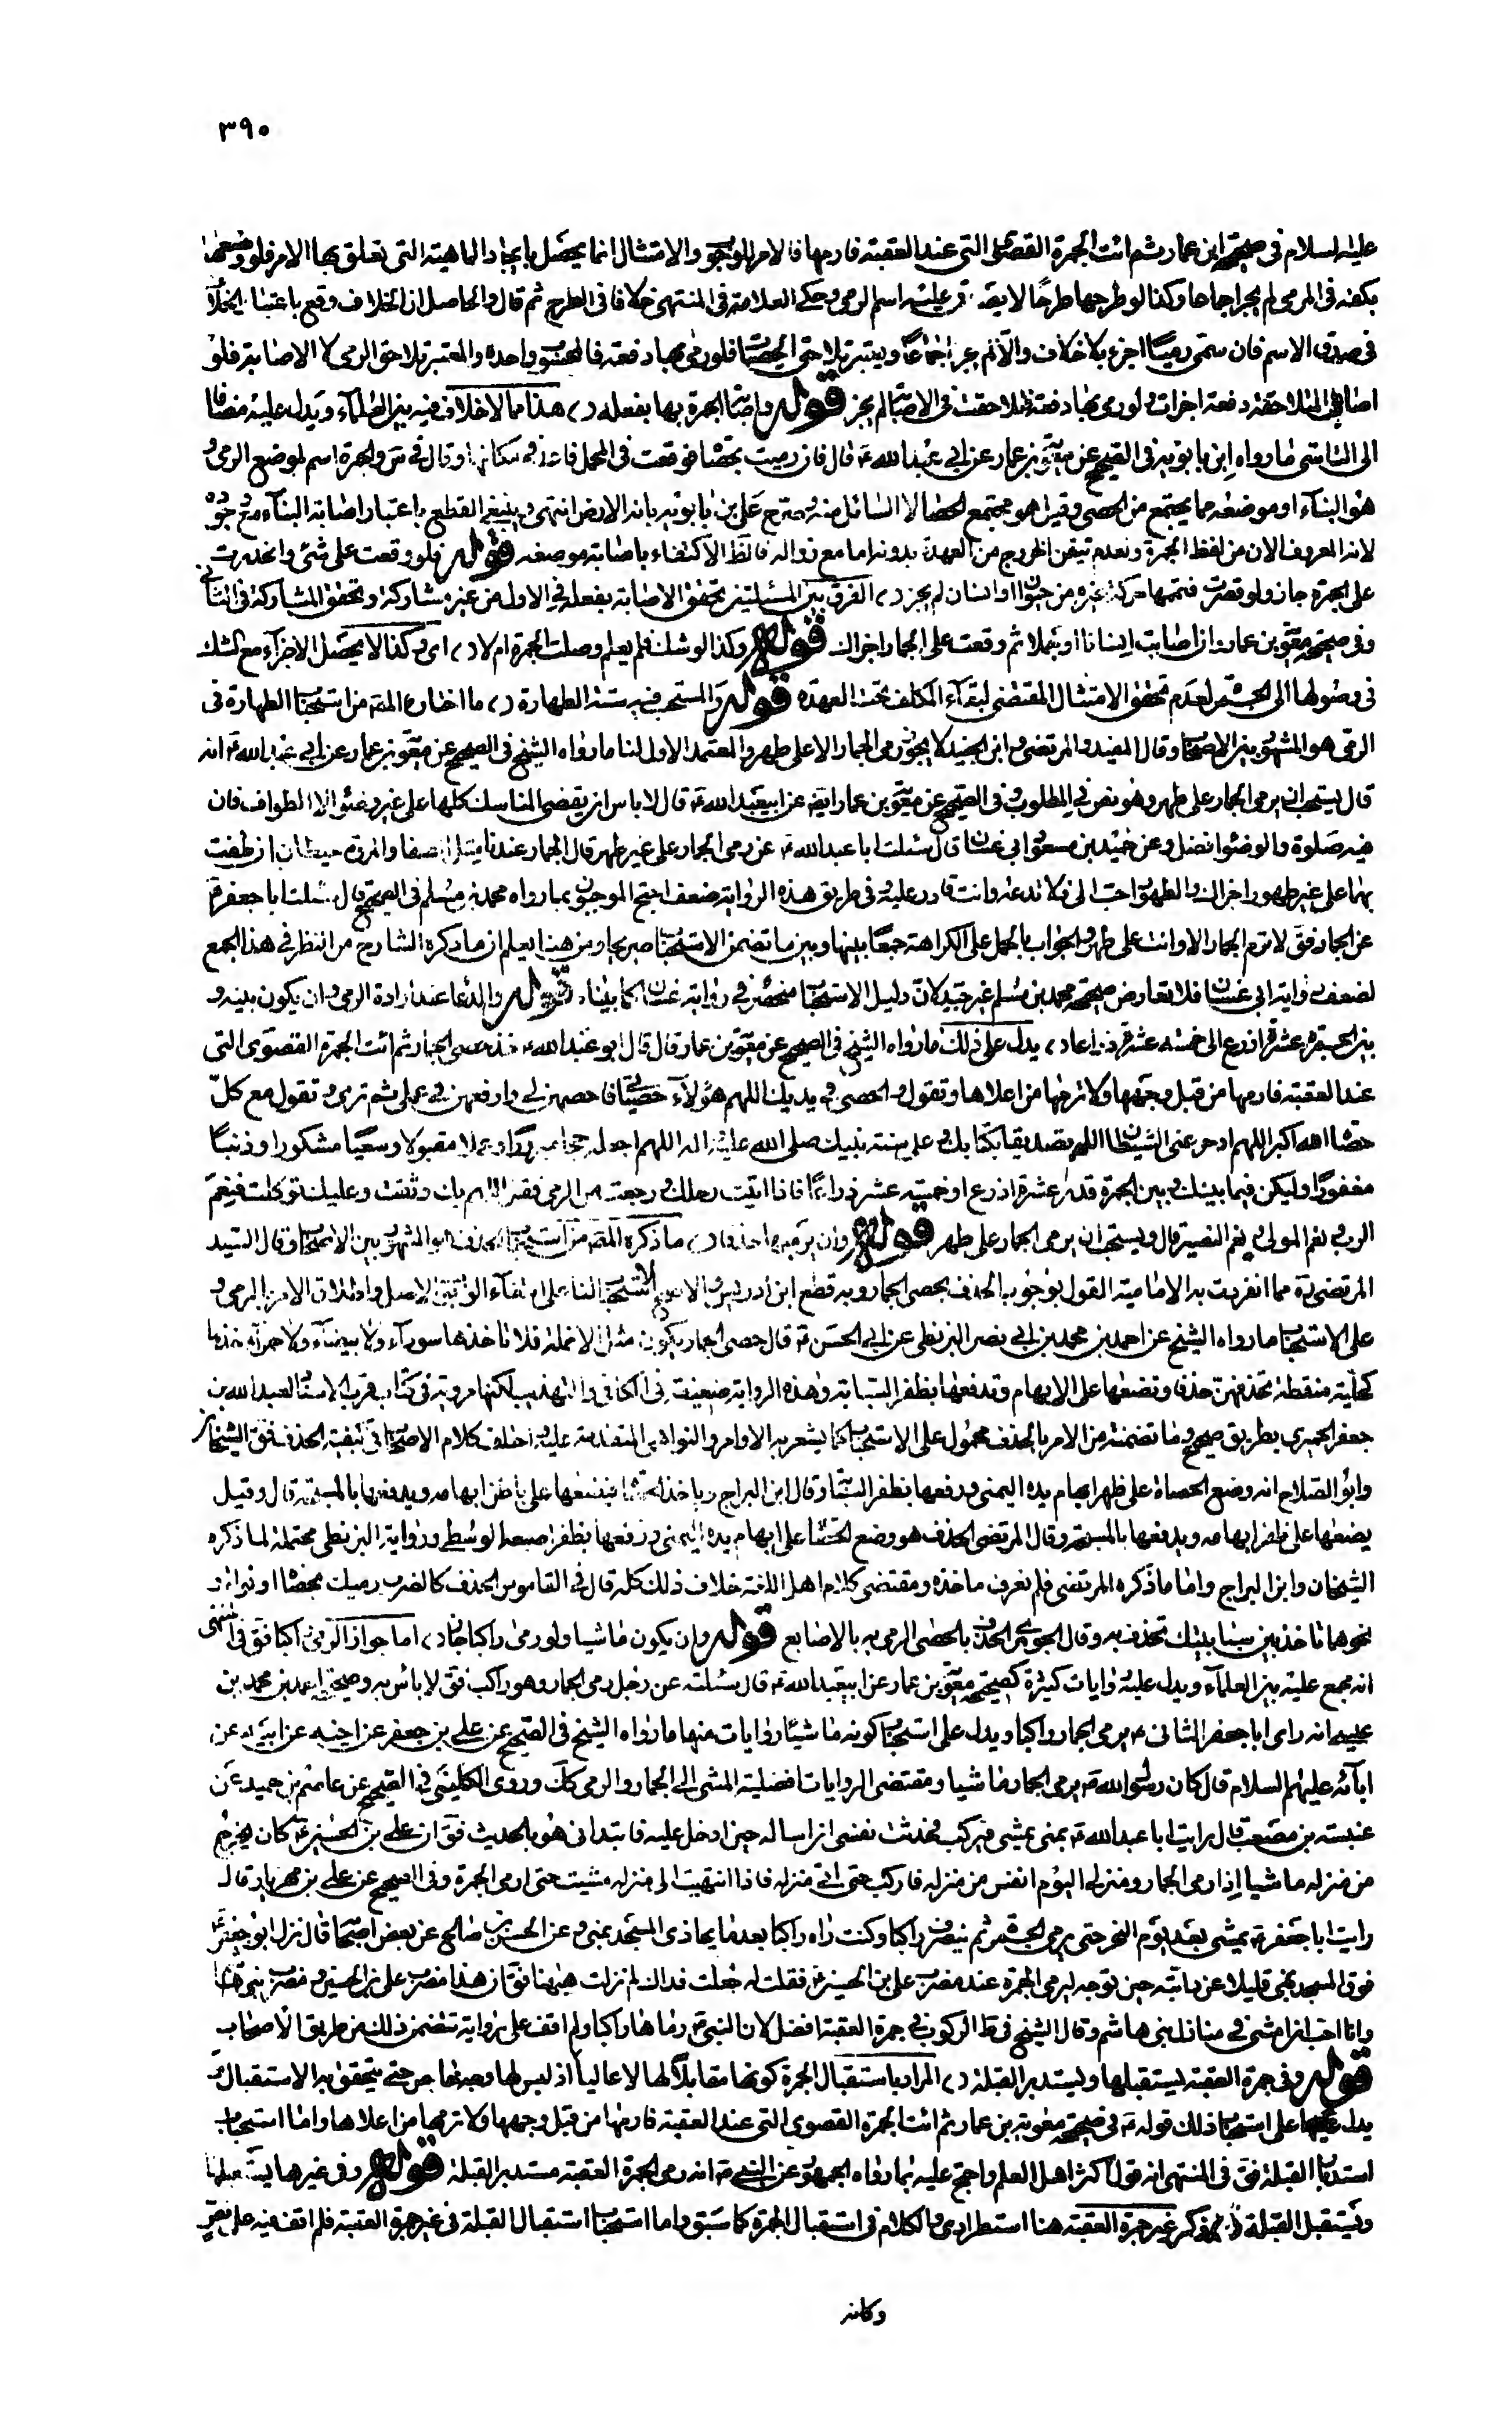 ٣٩٠
عليه السلام فى صحيحة ابن عمار ثم ائت الجمرة القصوى التى عند العقبة فارمها فالامر للوجوب والامتثال انما يحصل بايجاد الماهية التى تعلق بها الامر فلو وضعها
بكفه فى المرمى لم يجز اجماعا وكذا لو طرحها طرحًا لا يصدق عليه اسم الرمى وحكى العلامة فى المنتهى خلافا فى الطرح ثم قال والحاصل ان الخلاف وقع باعتبار الخلاف
فى صدق الاسم فان سمى رميًا اجزء بلا خلاف والا لم يجز اجماعًا ويعتبر تلاحق الحصيات فلو رمى بها دفعة فالمحسوب واحدة والمعتبر تلاحق الرمى لا الاصابة فلو
اصابت المتلاحقة دفعة اجزات ولو رمى بها دفعة فتلاحقت فى الاصابة لم يجز قوله واصابة الجمرة بها بفعله هذا مما لا خلاف فيه بين العلماء ويدل عليه مضافا
الى التاسى ما رواه ابن بابويه فى الصحيح عن معوية بن عمار عن ابى عبد الله ع قال فان رميت بحصاة فوقعت فى المحمل فاعد مكانها وقال فى س والجمرة اسم لموضع الرمى و
هو البناء او موضعه مما يجتمع من الحصى وقيل هو مجتمع الحصا لا السائل منه وصرح على بن بابويه بانه الارض انتهى وينبغى القطع باعتبار اصابة البناء مع وجوده
لانه المعروف الان من لفظ الجمرة ولعدم تيقن الخروج من العهدة بدونه اما مع زواله فالظ الاكتفاء باصابة موضعه قوله فلو وقعت على شئ وانحدرت
على الجمرة جاز ولو قصرت فتممها حركة غيره من حيوان او انسان لم يجز الفرق بين المسئلتين تحقق الاصابة بفعله فى الاول من غير مشاركة وتحقق المشاركة فى الثانى
وفى صحيحة معوية بن عمار وان اصابت انسانا او جملا ثم وقعت على الجمار اجزاك قوله وكذا لو شك فلم يعلم وصلت الجمرة ام لا اى وكذا لا يحصل الاجزاء مع الشك
فى وصولها الى الجمرة لعدم تحقق الامتثال المقتضى لبقاء المكلف تحت العهدة قوله والمستحب فيه ستة الطهارة ما اختاره المص من استحباب الطهارة فى
الرمى هو المشهور بين الاصحاب وقال المفيد والمرتضى وابن الجنيد لا يجوز رمى الجمار الا على طهر والمعتمد الاول لنا ما رواه الشيخ فى الصحيح عن معوية بن عمار عن ابى عبد الله ع انه
قال يستحب ان يرمى الجمار على طهر وهو نص فى المطلوب وفى الصحيح عن معوية بن عمار ايضا عن ابيعبد الله ع قال لا باس ان يقضى المناسك كلها على غير وضوء الا الطواف فان
فيه صلوة والوضوء افضل وعن حميد بن مسعود ابى غسان قال سئلت ابا عبد الله ع عن رمى الجمار على غير طهر قال الجمار عندنا مثل الصفا والمروة حيطان ان طفت
بهما على غير طهور اجزاك والطهور احب الى فلا تدعه وانت قادر عليه وفى طريق هذه الرواية ضعف احتج الموجبون بما رواه محمد بن مسلم فى الصحيح قال سئلت ابا جعفر ع
عن الجمار فق لا ترم الجمار الا وانت على طهر والجواب بالحمل على الكراهة جمعًا بينها وبين ما تضمن الاستحباب صريحا ومن هذا يعلم ان ما ذكره الشارح من النظر فى هذا الجمع
لضعف رواية ابى غسان فلا تعارض صحيحة محمد بن مسلم غير جيد لان دليل الاستحباب غير منحصر فى رواية غسان كما بيناه قوله والدعا عند ارادة الرمى وان يكون بينه و
بين الجمرة عشرة اذرع الى خمسة عشر ذراعا يدل على ذلك ما رواه الشيخ فى الصحيح عن معوية بن عمار قال قال ابو عبد الله ع خذ حصى الجمار ثم ائت الجمرة القصوى التى
عند العقبة فارمها من قبل وجهها ولا ترمها من اعلاها وتقول والحصى فى يديك اللهم هؤلاء حصياتى فاحصهن لى وارفعهن فى عملى ثم ترمى وتقول مع كل
حصاة الله اكبر اللهم ادحر عنى الشيطان اللهم تصديقا بكتابك وعلى سنة نبيك صلى الله عليه واله اللهم اجعله حجا مبرورًا وعملا مقبولا وسعيًا مشكورا وذنبًا
مغفورًا وليكن فيما بينك وبين الجمرة قدر عشرة اذرع او خمسة عشر ذراعًا فاذا اتيت رحلك ورجعت من الرمى فقل اللهم بك وثقت وعليك توكلت فنعم
الرب ونعم المولى ونعم النصير قال ويستحب ان يرمى الجمار على طهر قوله وان يرميها خذفا ما ذكره المص من استحباب الخذف هو المشهور بين الاصحاب وقال السيد
المرتضى ره مما انفردت به الامامية القول بوجوب الخذف بحصى الجمار وبه قطع ابن ادريس والاصح الاستحباب لنا على انتفاء الوجوب الاصل واطلاق الامر بالرمى و
على الاستحباب ما رواه الشيخ عن احمد بن محمد بن ابى نصر البزنطى عن ابى الحسن ع قال حصى الجمار يكون مثل الانملة فلا تاخذها سوداء ولا بيضاء ولا حمراء خذها
كحلية منقطة تخذفهن خذفا وتضعها على الابهام وتدفعها بظفر السبابة وهذه الرواية ضعيفة فى الكافى والتهذيب لكنها مروية فى كتاب قرب الاسناد لعبد الله بن
جعفر الحميرى بطريق صحيح وما تضمنته من الامر بالخذف محمول على الاستحباب كما يشعر به الاوامر والنواهى المتقدمة عليه واختلف كلام الاصحاب فى كيفية الخذف فق الشيخان
وابو الصلاح انه وضع الحصاة على ظهر ابهام يده اليمنى ودفعها بظفر السبابة وقال ابن البراج وياخذ الحصاة فيضعها على باطن ابهامه ويدفعها بالمسبحة قال وقيل
يضعها على ظفر ابهامه ويدفعها بالمسبحة وقال المرتضى الخذف هو وضع الحصاة على ابهام يده اليمنى ودفعها بظفر اصبعه الوسطى ورواية البزنطى محتملة لما ذكره
الشيخان وابن البراج واما ما ذكره المرتضى فلم نعرف ماخذه ومقتضى كلام اهل اللغة خلاف ذلك كله قال فى القاموس الخذف كالضرب رميك بحصاة او نواة او
نحوهما تاخذ بين سبابتيك تخذف به وقال الجوهرى الخذف بالحصى الرمى به بالاصابع قوله وان يكون ماشيا ولو رمى راكبا جاز اما جواز الرمى راكبا فق فى المنتهى
انه مجمع عليه بين العلماء ويدل عليه روايات كثيرة كصحيحة معوية بن عمار عن ابيعبد الله ع قال سئلته عن رجل رمى الجمار وهو راكب فق لا باس به وصحيحة احمد بن محمد بن
عيسى انه راى ابا جعفر الثانى ع يرمى الجمار راكبا ويدل على استحباب كونه ماشيًا روايات منها ما رواه الشيخ فى الصحيح عن على بن جعفر عن اخيه عن ابيه عن
ابائه عليهم السلام قال كان رسول الله ص يرمى الجمار ماشيا ومقتضى الروايات افضلية المشى الى الجمار والرمى كك وروى الكلينى فى الصحيح عن عاصم بن حميد عن
عنبسة بن مصعب قال رايت ابا عبد الله ع بمنى يمشى ويركب فحدثت نفسى ان اساله حين ادخل عليه فابتدانى هو بالحديث فق ان على بن الحسين ع كان يخرج
من منزله ماشيا اذا رمى الجمار ومنزلى اليوم انفس من منزله فاركب حتى اتى منزله فاذا انتهيت الى منزله مشيت حتى ارمى الجمرة وفى الصحيح عن على بن مهزيار قال
رايت ابا جعفر ع يمشى بعد يوم النحر حتى يرمى الجمرة ثم ينصرف راكبا وكنت اراه راكبا بعد ما يحاذى المسجد بمنى وعن الحسن بن صالح عن بعض اصحابنا قال نزل ابو جعفر ع
فوق المسجد بمنى قليلا عن دابته حين توجه ليرمى الجمرة عند مضرب على بن الحسين ع فقلت له جعلت فداك لم نزلت هيهنا فق ان هذا مضرب على بن الحسين ومضرب بنى هاشم
وانا احب ان امشى فى منازل بنى هاشم وقال الشيخ فى ط الركوب فى جمرة العقبة افضل لان النبى ص رماها راكبا ولم اقف على رواية تتضمن ذلك من طريق الاصحاب
قوله وفى جمرة العقبة يستقبلها ويستدبر القبلة المراد باستقبال الجمرة كونها مقابلًا لها لا عاليا اذ ليس لها وجه خاص حتى يتحقق به الاستقبال و
يدل على استحباب ذلك قوله ع فى صحيحة معوية بن عمار ثم ائت الجمرة القصوى التى عند العقبة فارمها من قبل وجهها ولا ترمها من اعلاها واما استحباب
استدبار القبلة فق فى المنتهى انه قول اكثر اهل العلم واحتج عليه بما رواه الجمهور عن النبى ص انه رمى الجمرة العقبة مستدبر القبلة قوله وفى غيرها يستقبلها
ويستقبل القبلة ذكر غير جمرة العقبة هنا استطرادى والكلام فى استقبال الجمرة كما سبق واما استحباب استقبال القبلة فى غير جمرة العقبة فلم اقف فيه على نص
وكانه